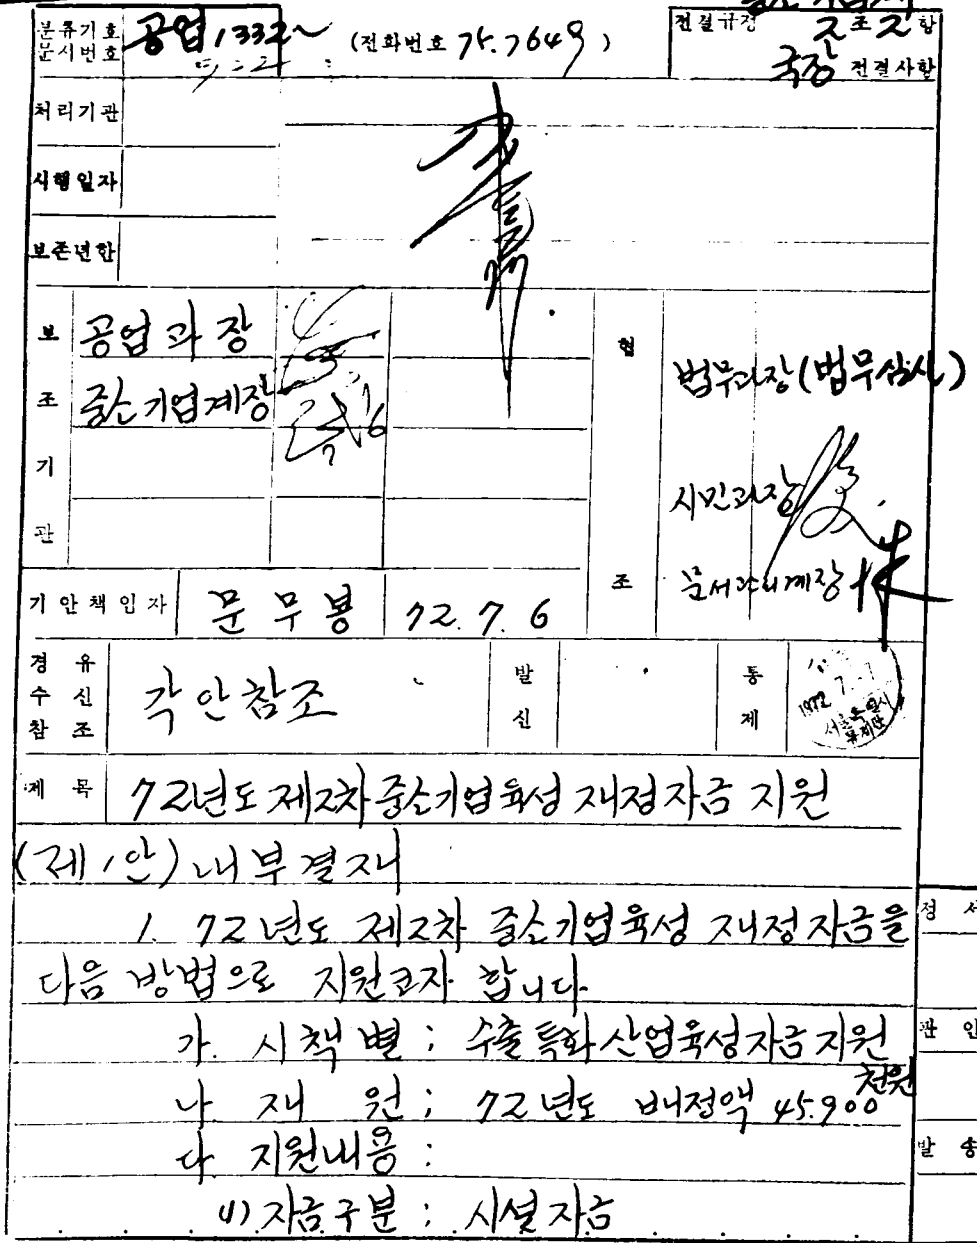 분류기호
문서번호 공업1332~
(전화번호 75.7649)
전결규정 조 항
국장 전결사항
처리기관
시행일자
보존년한
보조기관
공업과장
중소기업계장
협조
법무과장(법무심사)
시민과장
문서관리계장
기안책임자 문무봉 72.7.6
경유
수신
참조
각안참조
발신
통제
1972. 7. 7
서울특별시
제목 72년도 제2차 중소기업육성 재정자금 지원
(제1안) 내부결재
1. 72년도 제2차 중소기업육성 재정자금을
다음 방법으로 지원코자 합니다.
가. 시책별 : 수출특화산업육성자금지원
나. 재원 ; 72년도 배정액 45.900천원
다. 지원내용 :
1) 자금구분 : 시설자금
정서
관인
발송